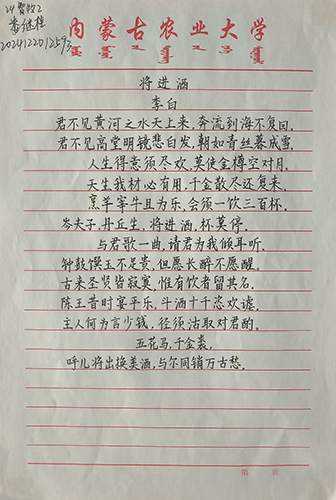 24智牧2
2024122012593
内蒙古农业大学
将进酒
李白
君不见黄河之水天上来，奔流到海不复回。
君不见高堂明镜悲白发，朝如青丝暮成雪。
人生得意须尽欢，莫使金樽空对月。
天生我材必有用，千金散尽还复来。
烹羊宰牛且为乐，会须一饮三百杯。
岑夫子，丹丘生，将进酒，杯莫停。
与君歌一曲，请君为我倾耳听。
钟鼓馔玉不足贵，但愿长醉不愿醒。
古来圣贤皆寂寞，惟有饮者留其名。
陈王昔时宴平乐，斗酒十千恣欢谑。
主人何为言少钱，径须沽取对君酌。
五花马，千金裘，
呼儿将出换美酒，与尔同销万古愁。
第 页